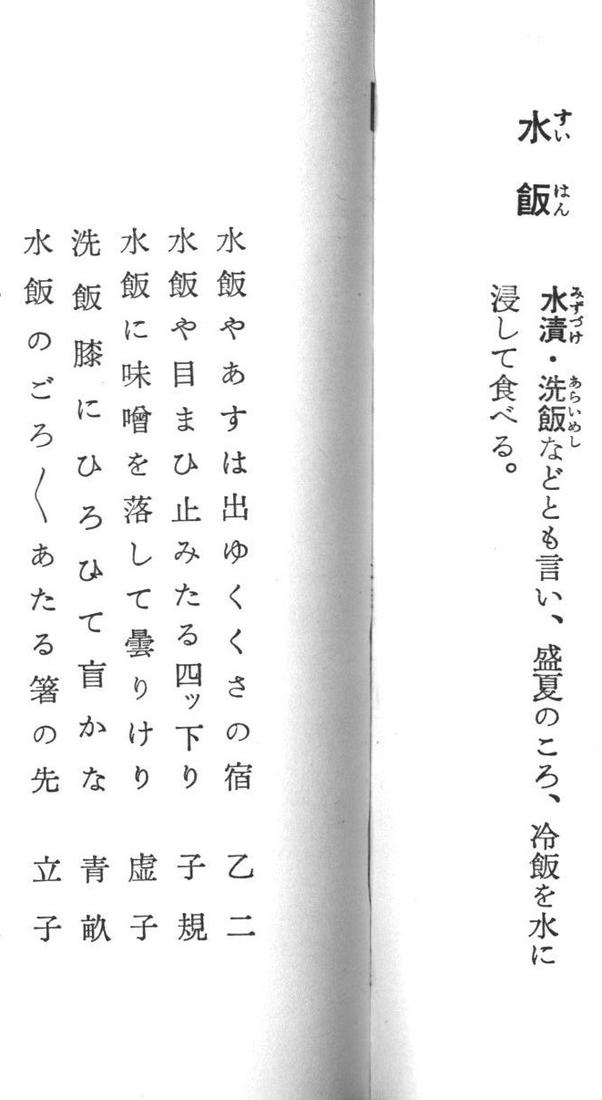 水飯
すいはん
水漬・洗飯などとも言い、盛夏のころ、冷飯を水に
みずづけ あらいめし
浸して食べる。
水飯やあすは出ゆくくさの宿 乙二
水飯や目まひ止みたる四ッ下り 子規
水飯に味噌を落して曇りけり 虚子
洗飯膝にひろひて盲かな 青畝
水飯のごろ〱あたる箸の先 立子